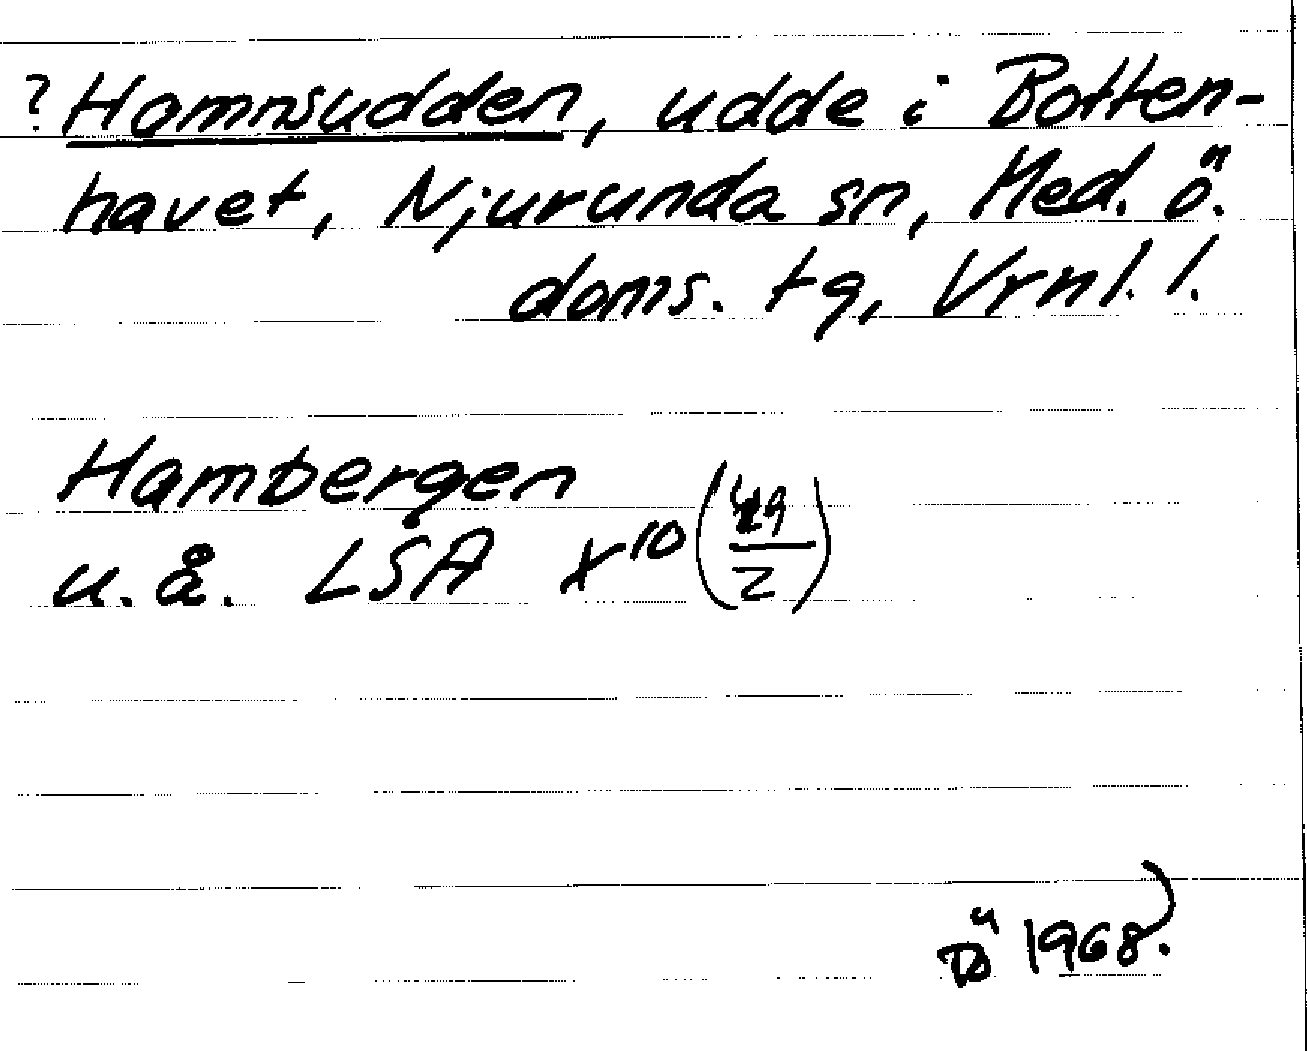 ? Hamnsudden, udde i Botten-
havet, Njurunda sn, Med. ö.
doms. tg, Vrnl. l.
Hambergen
u. å. LSA X¹⁰ (49/2)
1968.